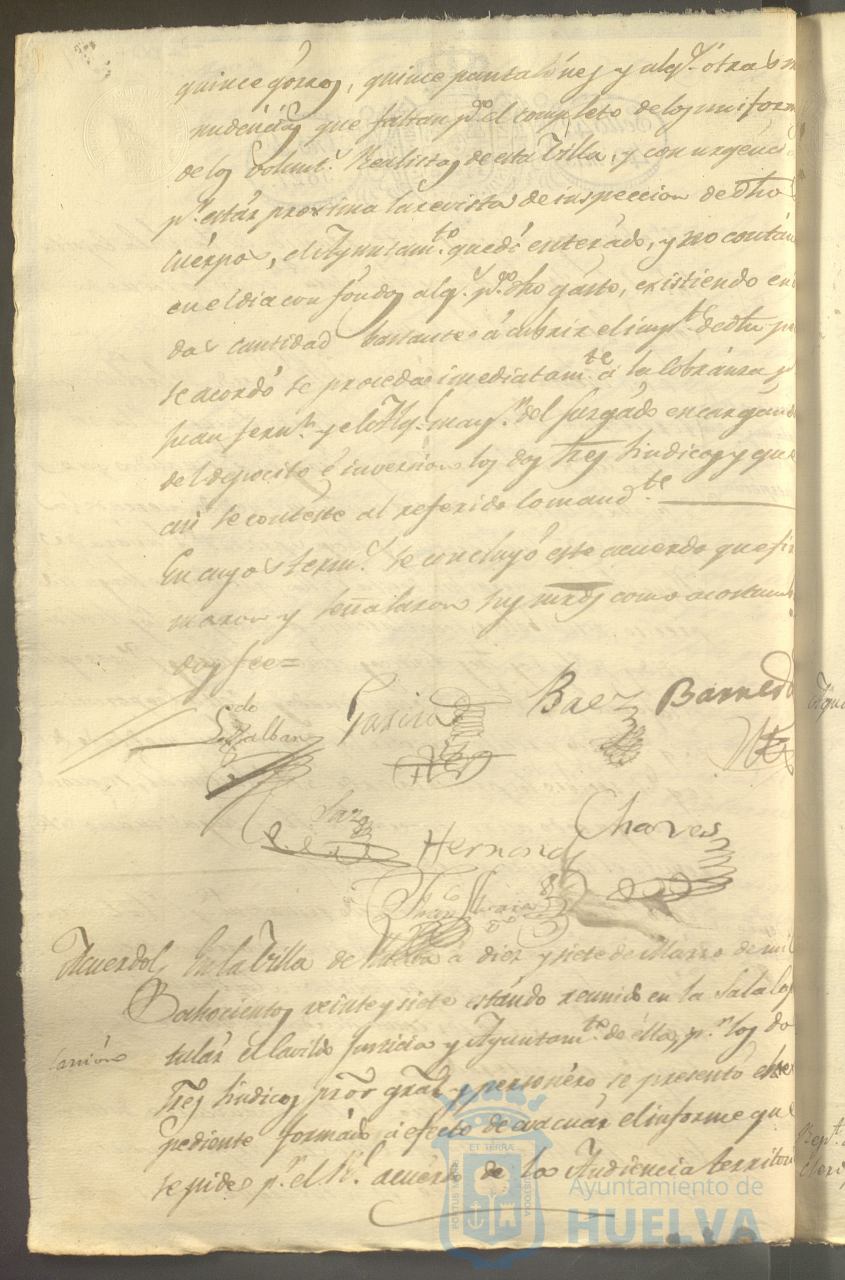 quince gorros, quince pantalones y alg.s otras m
nudencias que faltan p.a el completo de los uniform
de los volunt.s Realistas de esta Villa, y con urgenci
p.r estar proxima la revista de inspeccion de dho
cuerpo, el Ayuntam.to quedó enterado, y no contan
en el dia con fondos alg.s p.a dho gasto, existiendo en
das cantidad bastante á cubrir el imp.te de dh
se acordó se proceda imediatam.te á la cobranza p
Juan Fern.z y el Alg.l may.r del Juzgado encargand
del deposito é inversion los dos Sres Sindicos y que
asi se conteste al referido Comand.te
En cuyos term.s se concluyó este acuerdo que fir
maron y señalaron sus mrds como acostum
doy fee=
L.do Garcia Baez Barreda
Paz Hernand Chaves
Juan
Acuerdo En la Villa de Huelva á diez y siete de Marzo de mil
ochocientos veinte y siete estando reunido en la Sala Cap
tular el Cavildo Justicia y Ayuntam.to de ella, p.r los do
Sres Sindicos pror gral y personero se presentó el ex
pediente formado á efecto de evacuar el informe que
se pide p.r el R.l acuerdo de la Audiencia territori
ET TERRA
PORTUS MARIS
CUSTODIA
Ayuntamiento de
HUELVA